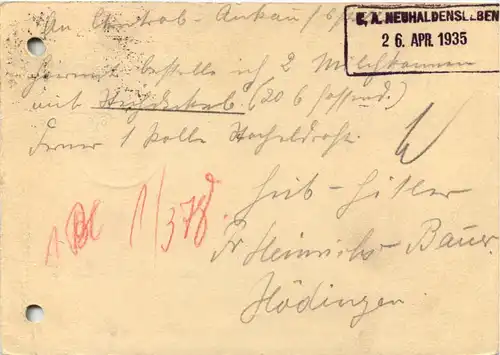 An Central-Ankauf
E. A. NEUHALDENSLEBEN
26. APR. 1935
Hiermit bestelle ich 2 Milchkannen
mit (20 b fassend.)
Ferner 1 Rolle Stacheldraht.
Heil-Hitler
Fr Heinrichs Bauer
Hödingen.